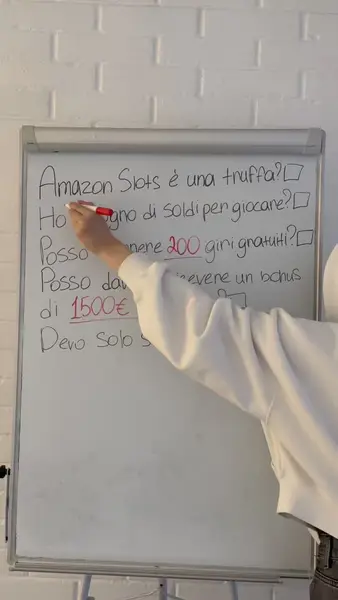 Amazon Slots é una truffa?
Ho di soldi per giocare?
Posso 200 giri gratuiti?
Posso un bonus
di 1500€
Devo solo